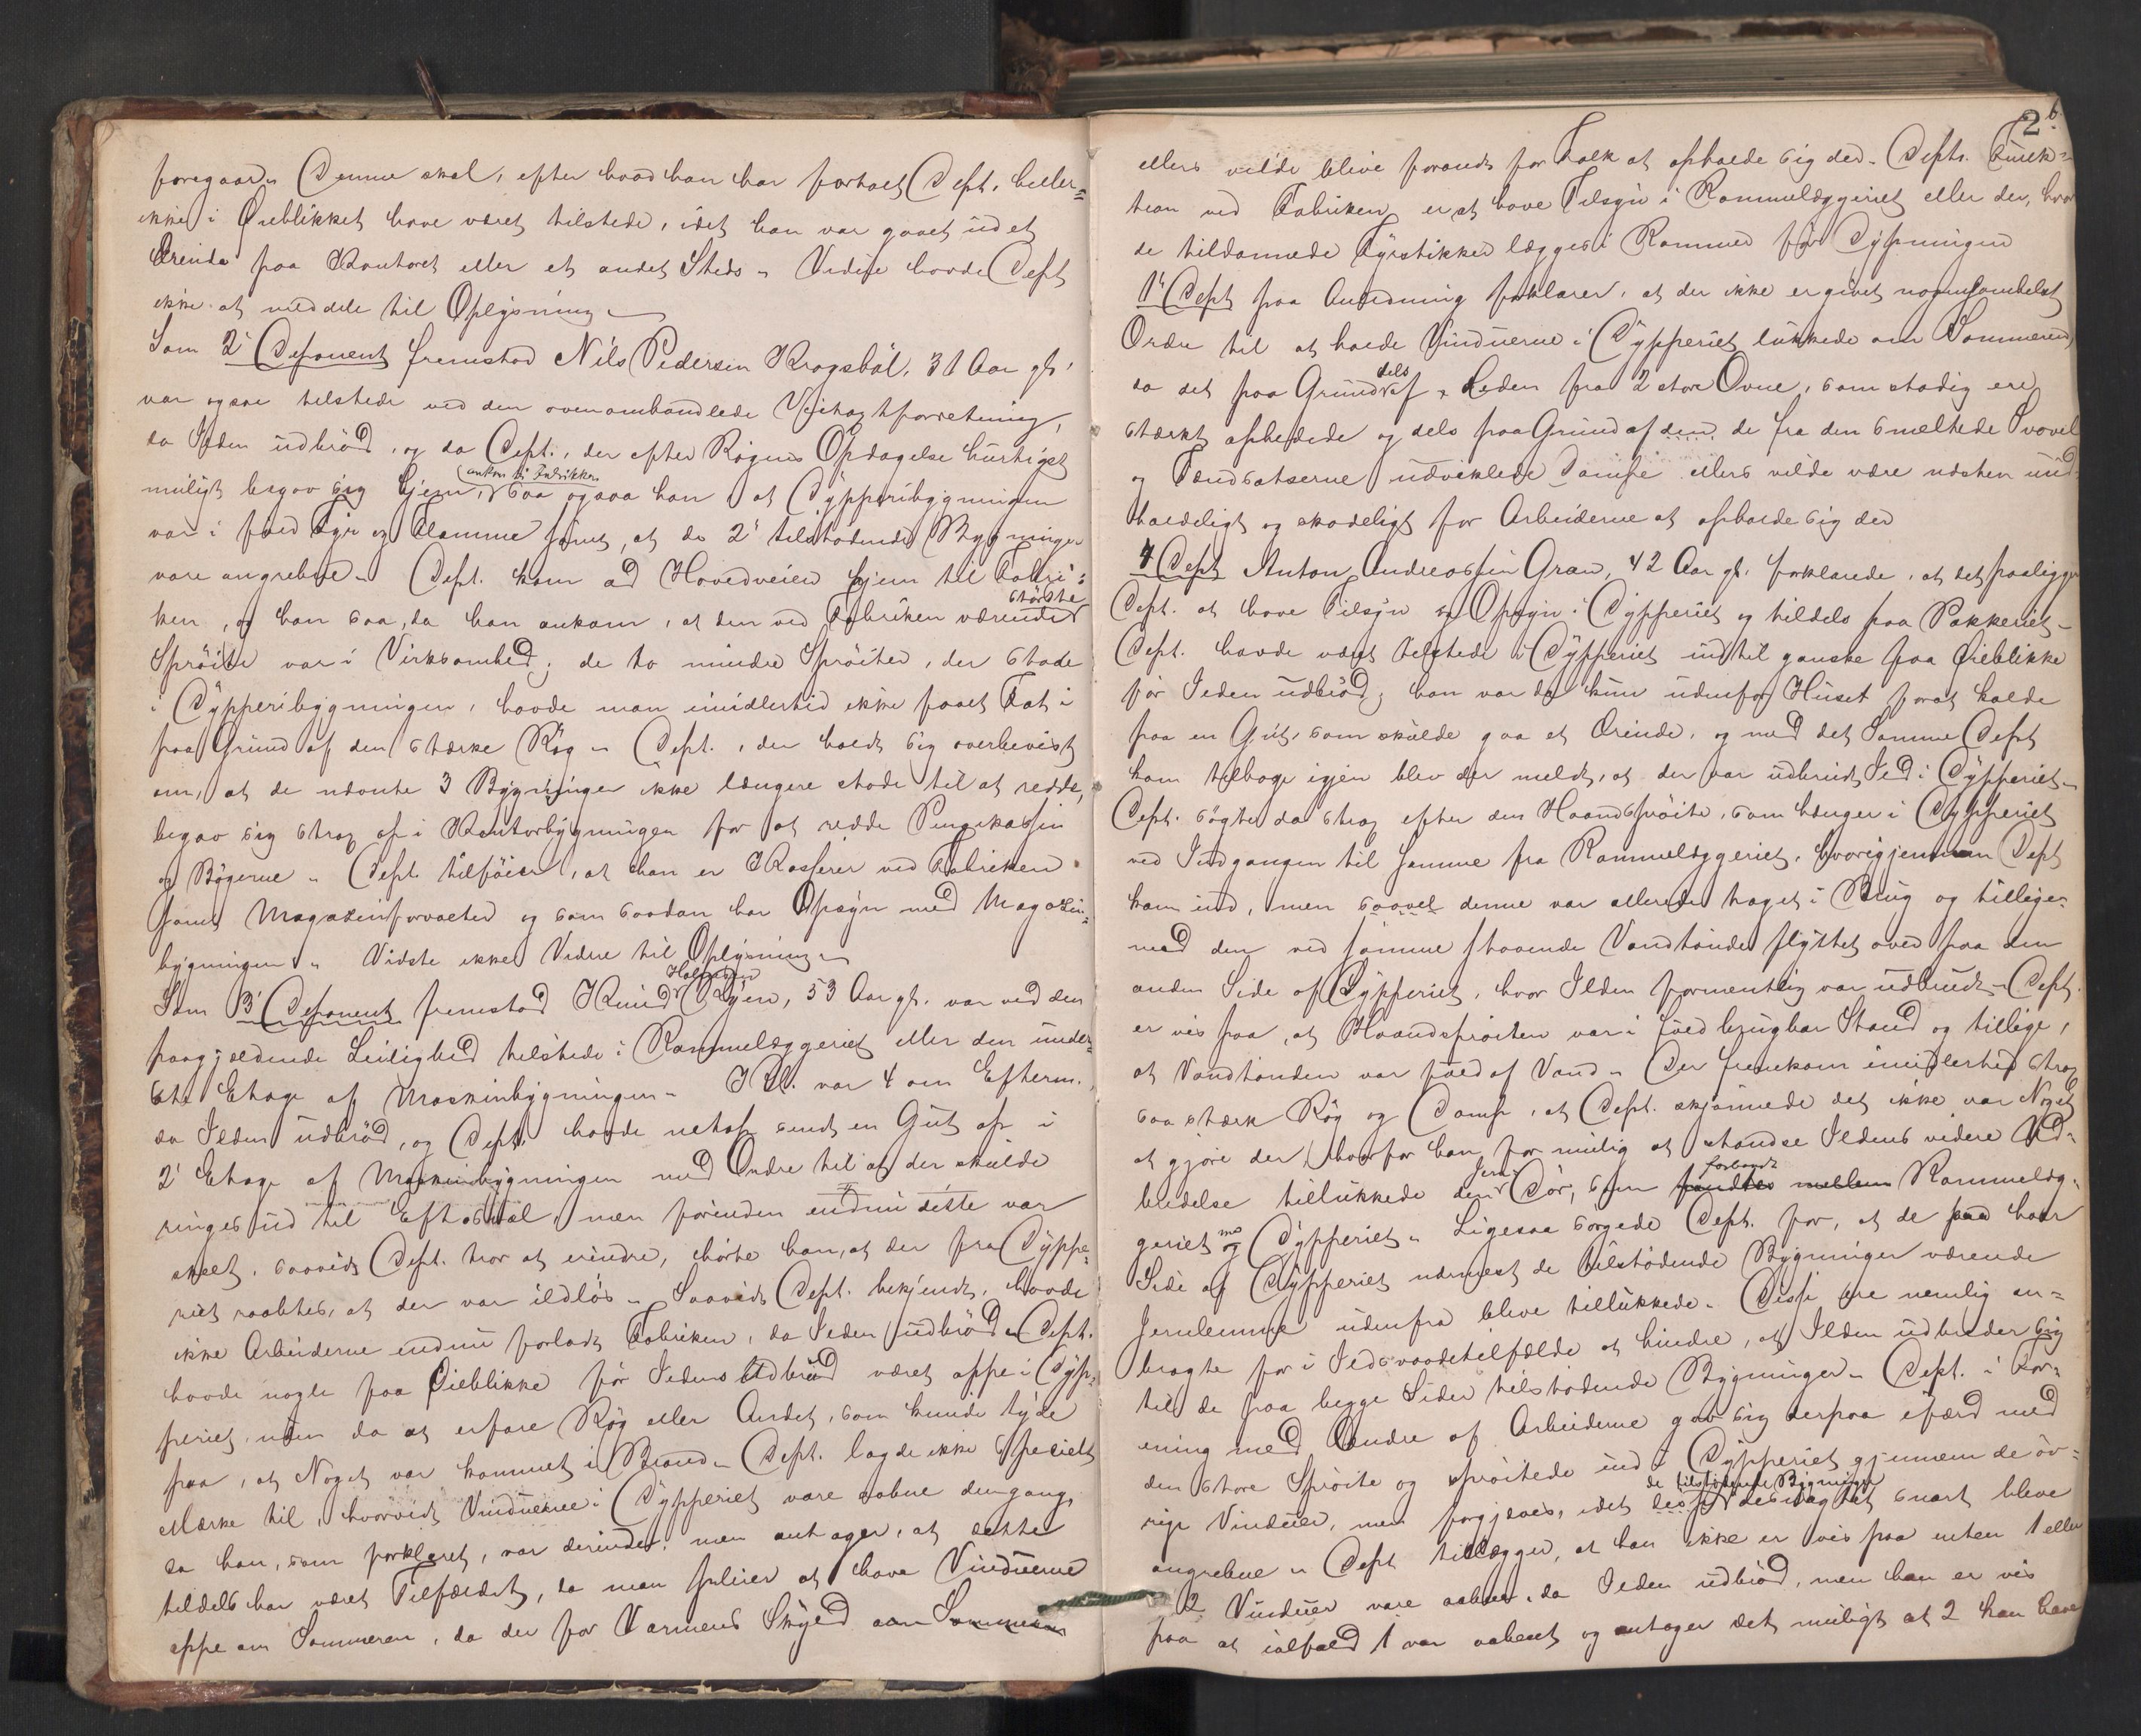 foregaar. Denne skal, efter hvad han har fortalt Dept. heller=
ikke i Øieblikket have været tilstede, idet han var gaaet ud et
Ærinde paa Kontoret eller et andet Sted. Videre havde Dept
ikke at meddele til Oplysning.
Som 2' Deponent fremstod Nils Pedersen Krogsböl, 31 Aar gl.,
var ogsaa tilstede ved den ovenomhandlede Forretning,
da Ilden udbröd, og da Dept., der efter Rögens Opdagelse hurtigst
muligt begav sig hjem, ankom til Fabrikken saa ogsaa han, at Dypperibygningen
var i fuld Fyr og Flamme samt, at de 2' tilstödende Bygninger
vare angrebne. Dept. kom ad Hovedveien hjem til Fabri=
ken, og han saa, da han ankom, at den ved Fabriken værende störste
Spröite var i Virksomhed; de to mindre Spröiter, der stode
i Dypperibygningen, havde man imidlertid ikke faaet Fat i
paa Grund af den stærke Røg. Dept., der holdt sig overbevist
om, at de nævnte 3 Bygninger ikke længere stode til at redde,
begav sig strax op i Kontorbygningen for at redde Pengekassen
og Bøgerne. Dept. tilföier, at han er Kasserer ved Fabriken
samt Magazinforvalter og som saadan har Opsyn med Magazin=
bygningen. Vidste ikke Videre til Oplysning.
Som 3' Deponent fremstod Knud Halvorsen Ryen, 53 Aar gl. var ved den
paagjældende Leilighed tilstede i Rammelæggeriet eller den under=
ste Etage af Maskinbygningen. Kl. var 4 om Efterm.,
da Ilden udbröd, og Dept. havde netop sendt en Gut op i
2' Etage af Maskinbygningen med Ordre til at der skulde
ringes ud til Eftasmål, men förinden endnu dette var
skeet, saavidt Dept. tror at erindre, hörte han, at der fra Dyppe=
riet raabtes, at der var ildlös. Saavidt Dept. bekjendt, havde
ikke Arbeiderne endnu forladt Fabriken, da Ilden udbröd. Dept.
havde nogle faa Øieblikke för Ildens Udbrud været oppe i Dyp=
periet, uden da at erfare Røg eller Andet, som kunde tyde
paa, at Noget var kommet i Brand. Dept. lagde ikke specielt
Mærke til, hvorvidt Vinduerne i Dypperiet vare aabne dengang,
da han, som forklaret, var derinde, men antager, at dette
tildels har været Tilfældet, da man pleier at have Vinduerne
oppe om Sommeren, da der for Varmens Skyld om Sommeren
2 6.
ellers vilde blive forondt for Folk at opholde sig der. Depts. Funk=
tion ved Fabriken er at have Tilsyn i Rammelæggeriet eller der, hvor
de tildannede Fyrstikker lægges i Rammer för Dypningen
1' Dept paa Anledning forklarer, at der ikke er givet nogensomhelst
Ordre til at holde Vinduerne i Dypperiet lukkede om Sommeren,
da det paa Grund dels af Heden fra 2 store Ovne, som stadig ere
stærkt ophedede og dels paa Grund af den de fra den smeltede Svovel
og Tændsatserne udviklede Dampe ellers vilde være næsten uud=
holdeligt og skadeligt for Arbeiderne at opholde sig der
4 Dept Anton Andreassen Gran, 42 Aar gl. forklarede, at det paaligger
Dept. at have Tilsyn og Opsyn i Dypperiet og tildels paa Pakkeriet.
Dept. havde været tilstede i Dypperiet indtil ganske faa Øieblikke
för Ilden udbröd; han var da kun udenfor Huset forat kalde
paa en Gut, som skulde gaa et Ærinde, og med det Samme Dept
kom tilbage igjen blev der meldt, at der var udbrudt Ild i Dypperiet.
Dept. sögte da strax efter den Haandspröite, som hænger i Dypperiet
ved Indgangen til samme fra Rammelæggeriet, hvorigjennem Dept
kom ind, men saavel denne var allerede taget i Brug og tillige=
med den ved samme staaende Vandtönde flyttet over paa den
anden Side af Dypperiet, hvor Ilden formentlig var udbrudt. Dept.
er vis paa, at Haandspröiten var i fuld brugbar Stand og tillige,
at Vandtönden var fuld af Vand. Der fremkom imidlertid strax
saa stærk Røg og Damp, at Dept. skjönnede det ikke var Noget
at gjöre der, hvorfor han for mulig at standse Ildens videre Ud=
bredelse tillukkede den Jern- Dör, som forbandt fandtes mellem Rammelæg=
geriet med og Dypperiet. Ligesaa sörgede Dept. for, at de paa hver
Side af Dypperiet nærmest de tilstödende Bygninger værende
Jernlemme udenfra bleve tillukkede. Disse ere nemlig an=
bragte for i Ildsvaadetilfælde at hindre, at Ilden udbreder sig
til de paa begge Sider tilstödende Bygninger. Dept. i For=
ening med Andre af Arbeiderne gav sig derpaa ifærd med
den store Spröite og spröitede ind i Dypperiet gjennem de öv=
rige Vinduer, men forgjæves, idet de tilstødende Bygninger snart bleve
angrebne. Dept tillægger, at han ikke er vis paa enten 1 eller
2 Vinduer vare aabne, da Ilden udbröd, men han er vis
paa at ialfald 1 var aabent og antager det muligt at 2 kan have